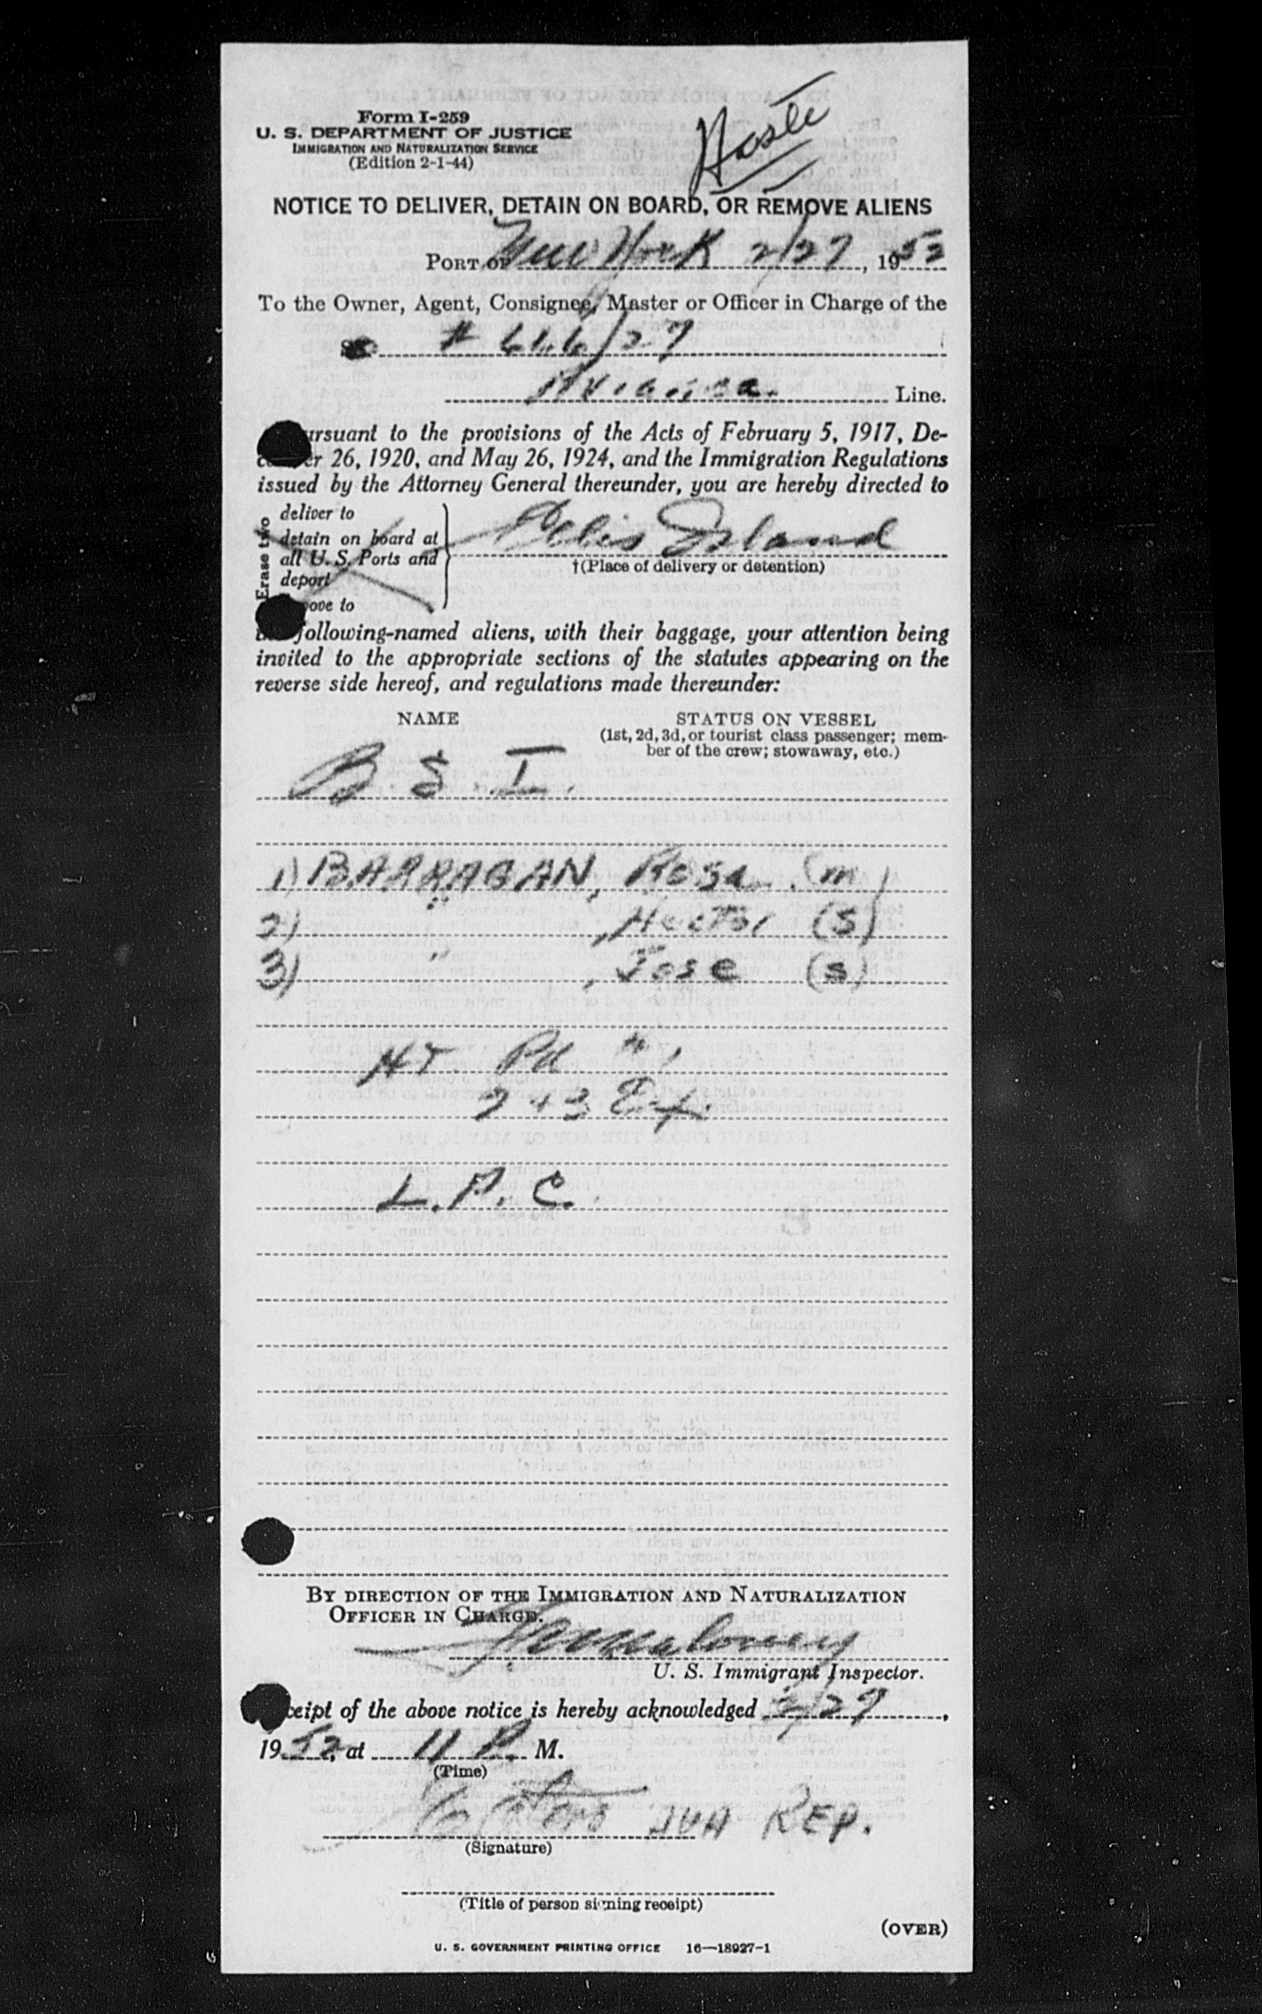 Form I-259
U. S. DEPARTMENT OF JUSTICE
IMMIGRATION AND NATURALIZATION SERVICE
(Edition 2-1-44)
NOTICE TO DELIVER, DETAIN ON BOARD, OR REMOVE ALIENS
PORT OF New York 2/27, 1952
To the Owner, Agent, Consignee, Master or Officer in Charge of the
# 666/27
Avianca. Line.
ursuant to the provisions of the Acts of February 5, 1917, De-
er 26, 1920, and May 26, 1924, and the Immigration Regulations
issued by the Attorney General thereunder, you are hereby directed to
Erase two
deliver to
detain on board at
all U. S. Ports and
deport
ove to
Ellis Island
†(Place of delivery or detention)
following-named aliens, with their baggage, your attention being
invited to the appropriate sections of the statutes appearing on the
reverse side hereof, and regulations made thereunder:
NAME STATUS ON VESSEL
(1st, 2d, 3d, or tourist class passenger; mem-
ber of the crew; stowaway, etc.)
B. S. I.
1) BARRAGAN, Rosa (m)
2) " , Hector (S)
3) " , Jose (s)
HT Pd
2 + 3 Ex.
L. P. C.
BY DIRECTION OF THE IMMIGRATION AND NATURALIZATION
OFFICER IN CHARGE.
U. S. Immigrant Inspector.
eipt of the above notice is hereby acknowledged 2/27,
1952, at 11 P. M.
(Time)
AVA REP.
(Signature)
(Title of person signing receipt)
(OVER)
U. S. GOVERNMENT PRINTING OFFICE 16—18927-1